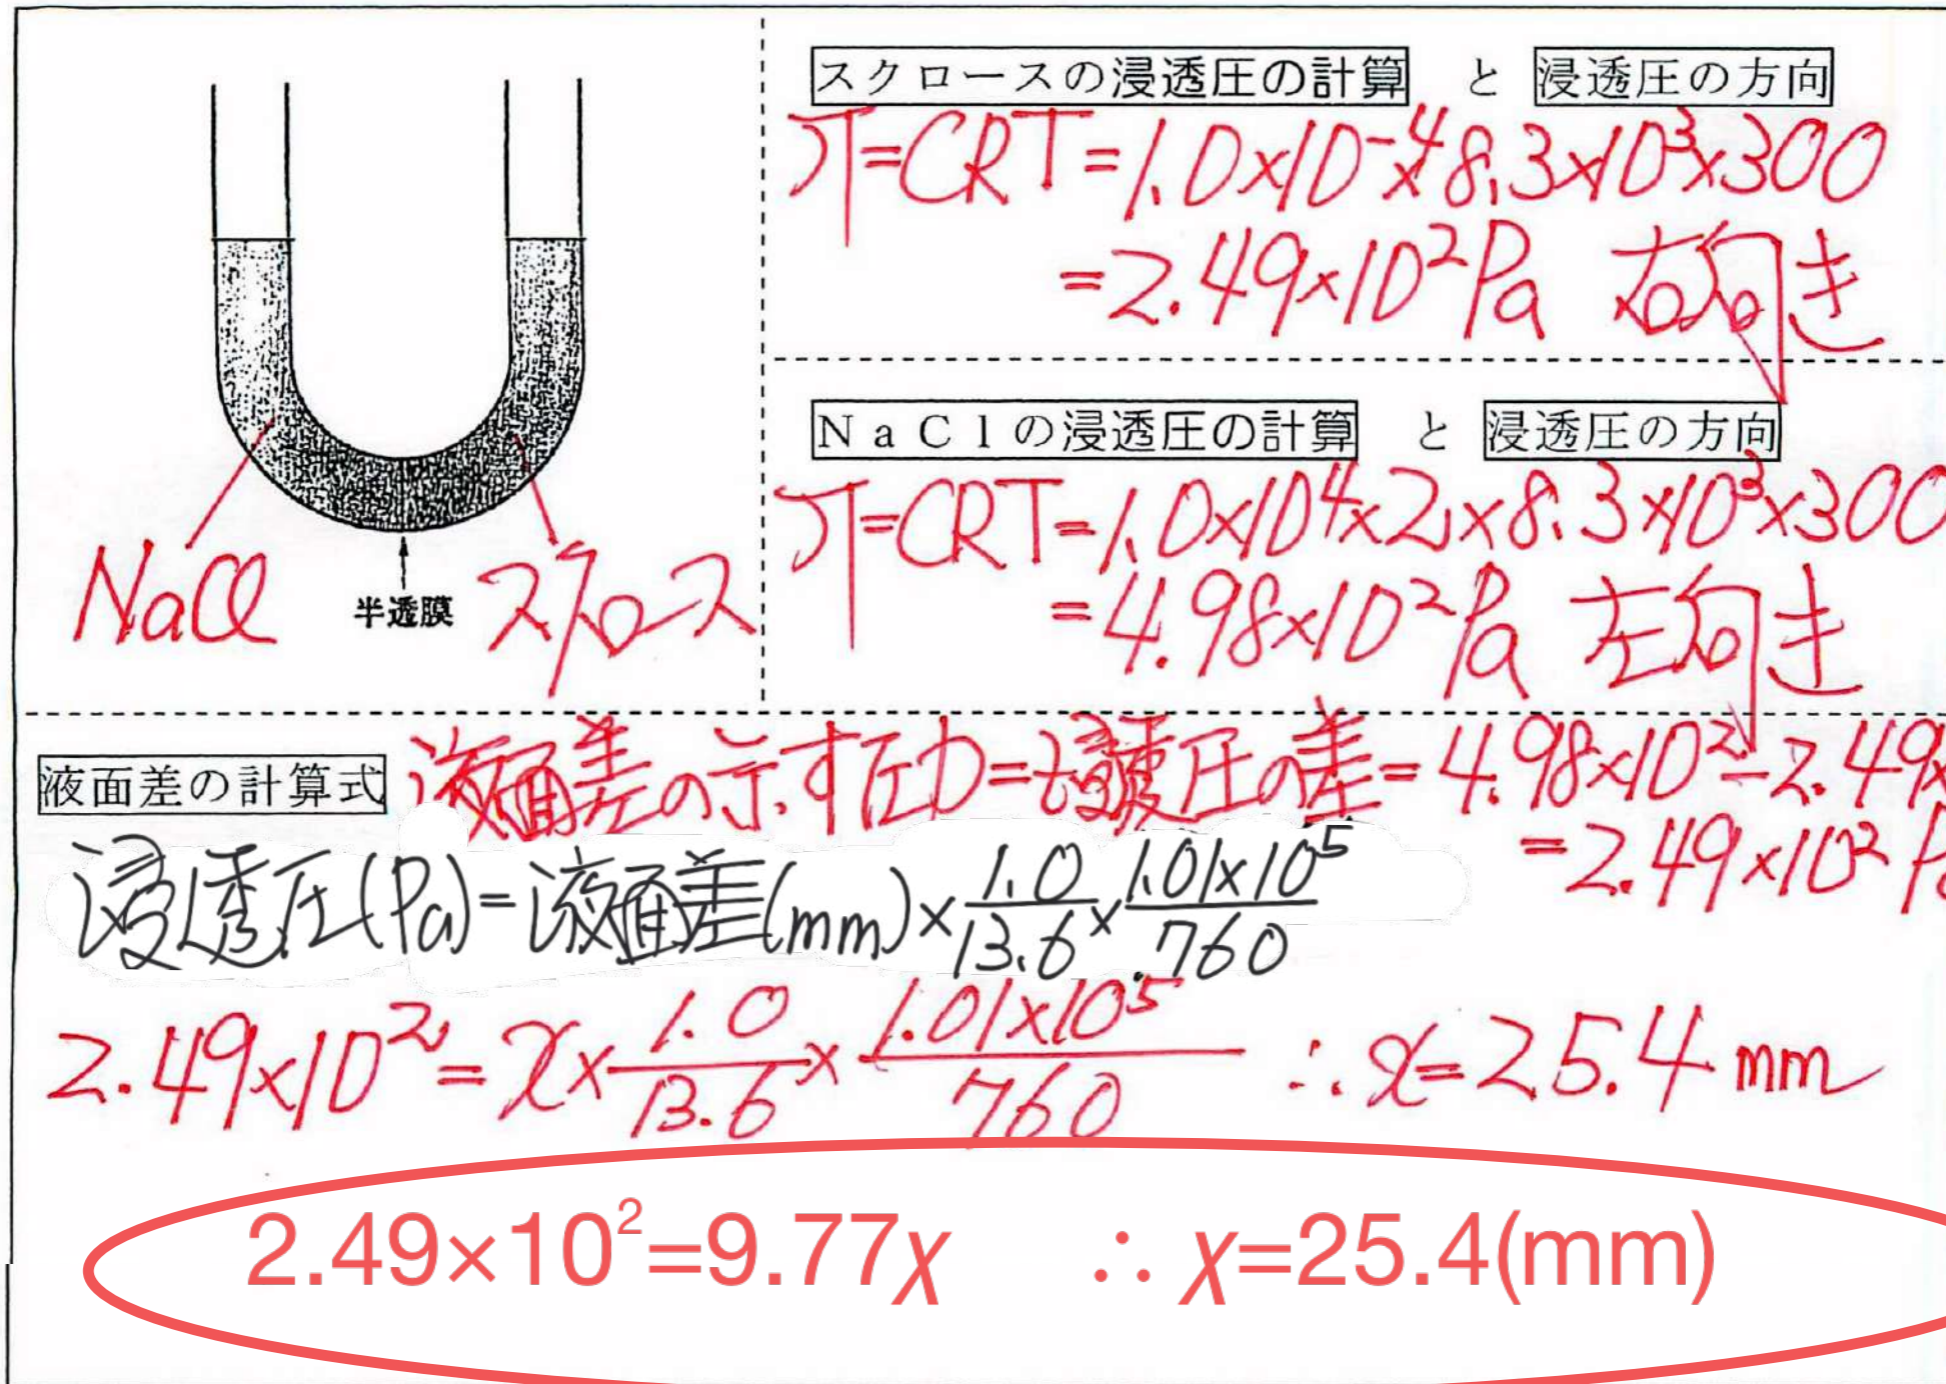 スクロースの浸透圧の計算 と 浸透圧の方向
π=CRT=1.0×10⁻⁴×8.3×10³×300
=2.49×10²Pa 右向き
NaClの浸透圧の計算 と 浸透圧の方向
π=CRT=1.0×10⁴×2×8.3×10³×300
=4.98×10²Pa 左向き
NaCl
半透膜
スクロース
液面差の計算式
液面差の示す圧力=浸透圧の差=4.98×10²-2.49×
=2.49×10² P
浸透圧(Pa)=液面差(mm)×1.0/13.6×1.01×10⁵/760
2.49×10²=x×1.0/13.6×1.01×10⁵/760 ∴x=25.4mm
2.49×10²=9.77χ ∴χ=25.4(mm)